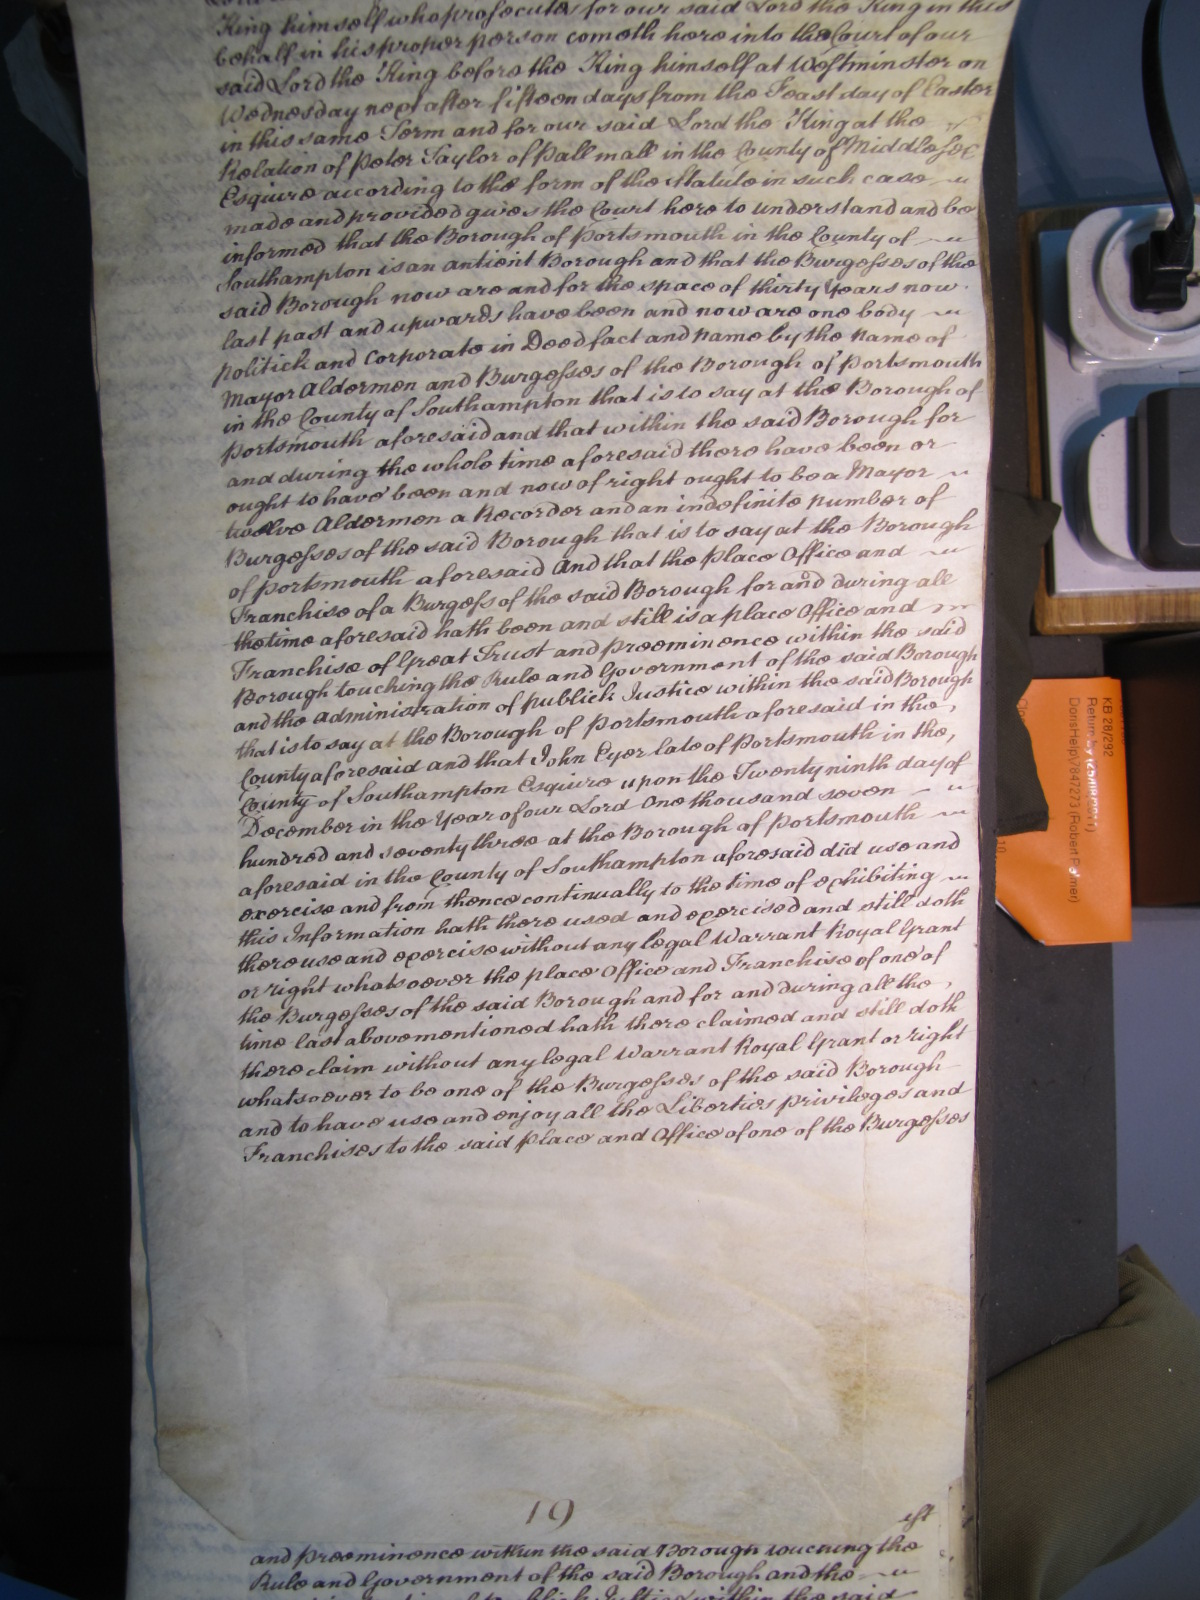 King himself who prosecutes for our said Lord the King in this
behalf in his proper person cometh here into the Court of our
said Lord the King before the King himself at Westminster on
Wednesday next after fifteen days from the Feast day of Easter
in this same Term and for our said Lord the King at the
Relation of Peter Taylor of Pall mall in the County of Middlesex
Esquire according to the form of the Statute in such case
made and provided gives the Court here to understand and be
informed that the Borough of Portsmouth in the County of
Southampton is an antient Borough and that the Burgesses of the
said Borough now are and for the space of thirty Years now
last past and upwards have been and now are one body
politick and Corporate in Deed fact and name by the name of
Mayor Aldermen and Burgesses of the Borough of Portsmouth
in the County of Southampton that is to say at the Borough of
Portsmouth aforesaid and that within the said Borough for
and during the whole time aforesaid there have been or
ought to have been and now of right ought to be a Mayor
twelve Aldermen a Recorder and an indefinite number of
Burgesses of the said Borough that is to say at the Borough
of Portsmouth aforesaid And that the Place Office and
Franchise of a Burgess of the said Borough for and during all
the time aforesaid hath been and still is a place Office and
Franchise of Great Trust and Preeminence within the said
Borough touching the Rule and Government of the said Borough
and the administration of publick Justice within the said Borough
that is to say at the Borough of Portsmouth aforesaid in the
County aforesaid and that John Eyer late of Portsmouth in the
County of Southampton Esquire upon the Twenty ninth day of
December in the Year of our Lord One thousand seven
hundred and seventy three at the Borough of Portsmouth
aforesaid in the County of Southampton aforesaid did use and
exercise and from thence continually to the time of exhibiting
this Information hath there used and exercised and still doth
there use and exercise without any legal Warrant Royal Grant
or right whatsoever the place Office and Franchise of one of
the Burgesses of the said Borough and for and during all the
time last abovementioned hath there claimed and still doth
there claim without any legal Warrant Royal Grant or right
whatsoever to be one of the Burgesses of the said Borough
and to have use and enjoy all the Liberties privileges and
Franchises to the said place and Office of one of the Burgesses
19
and Preeminence within the said Borough touching the
Rule and Government of the said Borough and the
publick Justice within the said
KB 28/292
Return by (25/08/2011)
DorisHelp\7847273 (Robert Palmer)